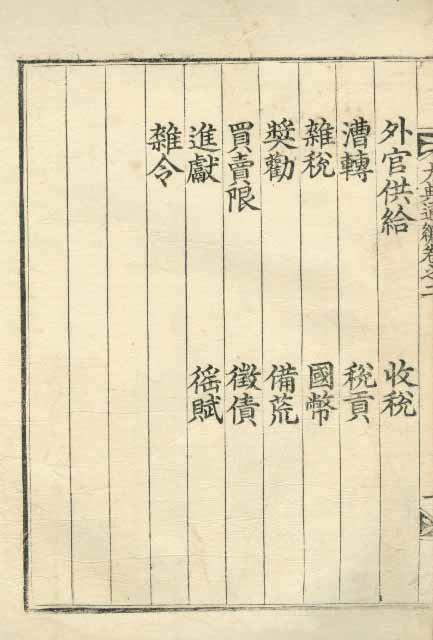 大典通編卷之二
外官供給 收稅
漕轉 稅貢
雜稅 國幣
奬勸 備荒
買賣限 徵債
進獻 徭賦
雜令